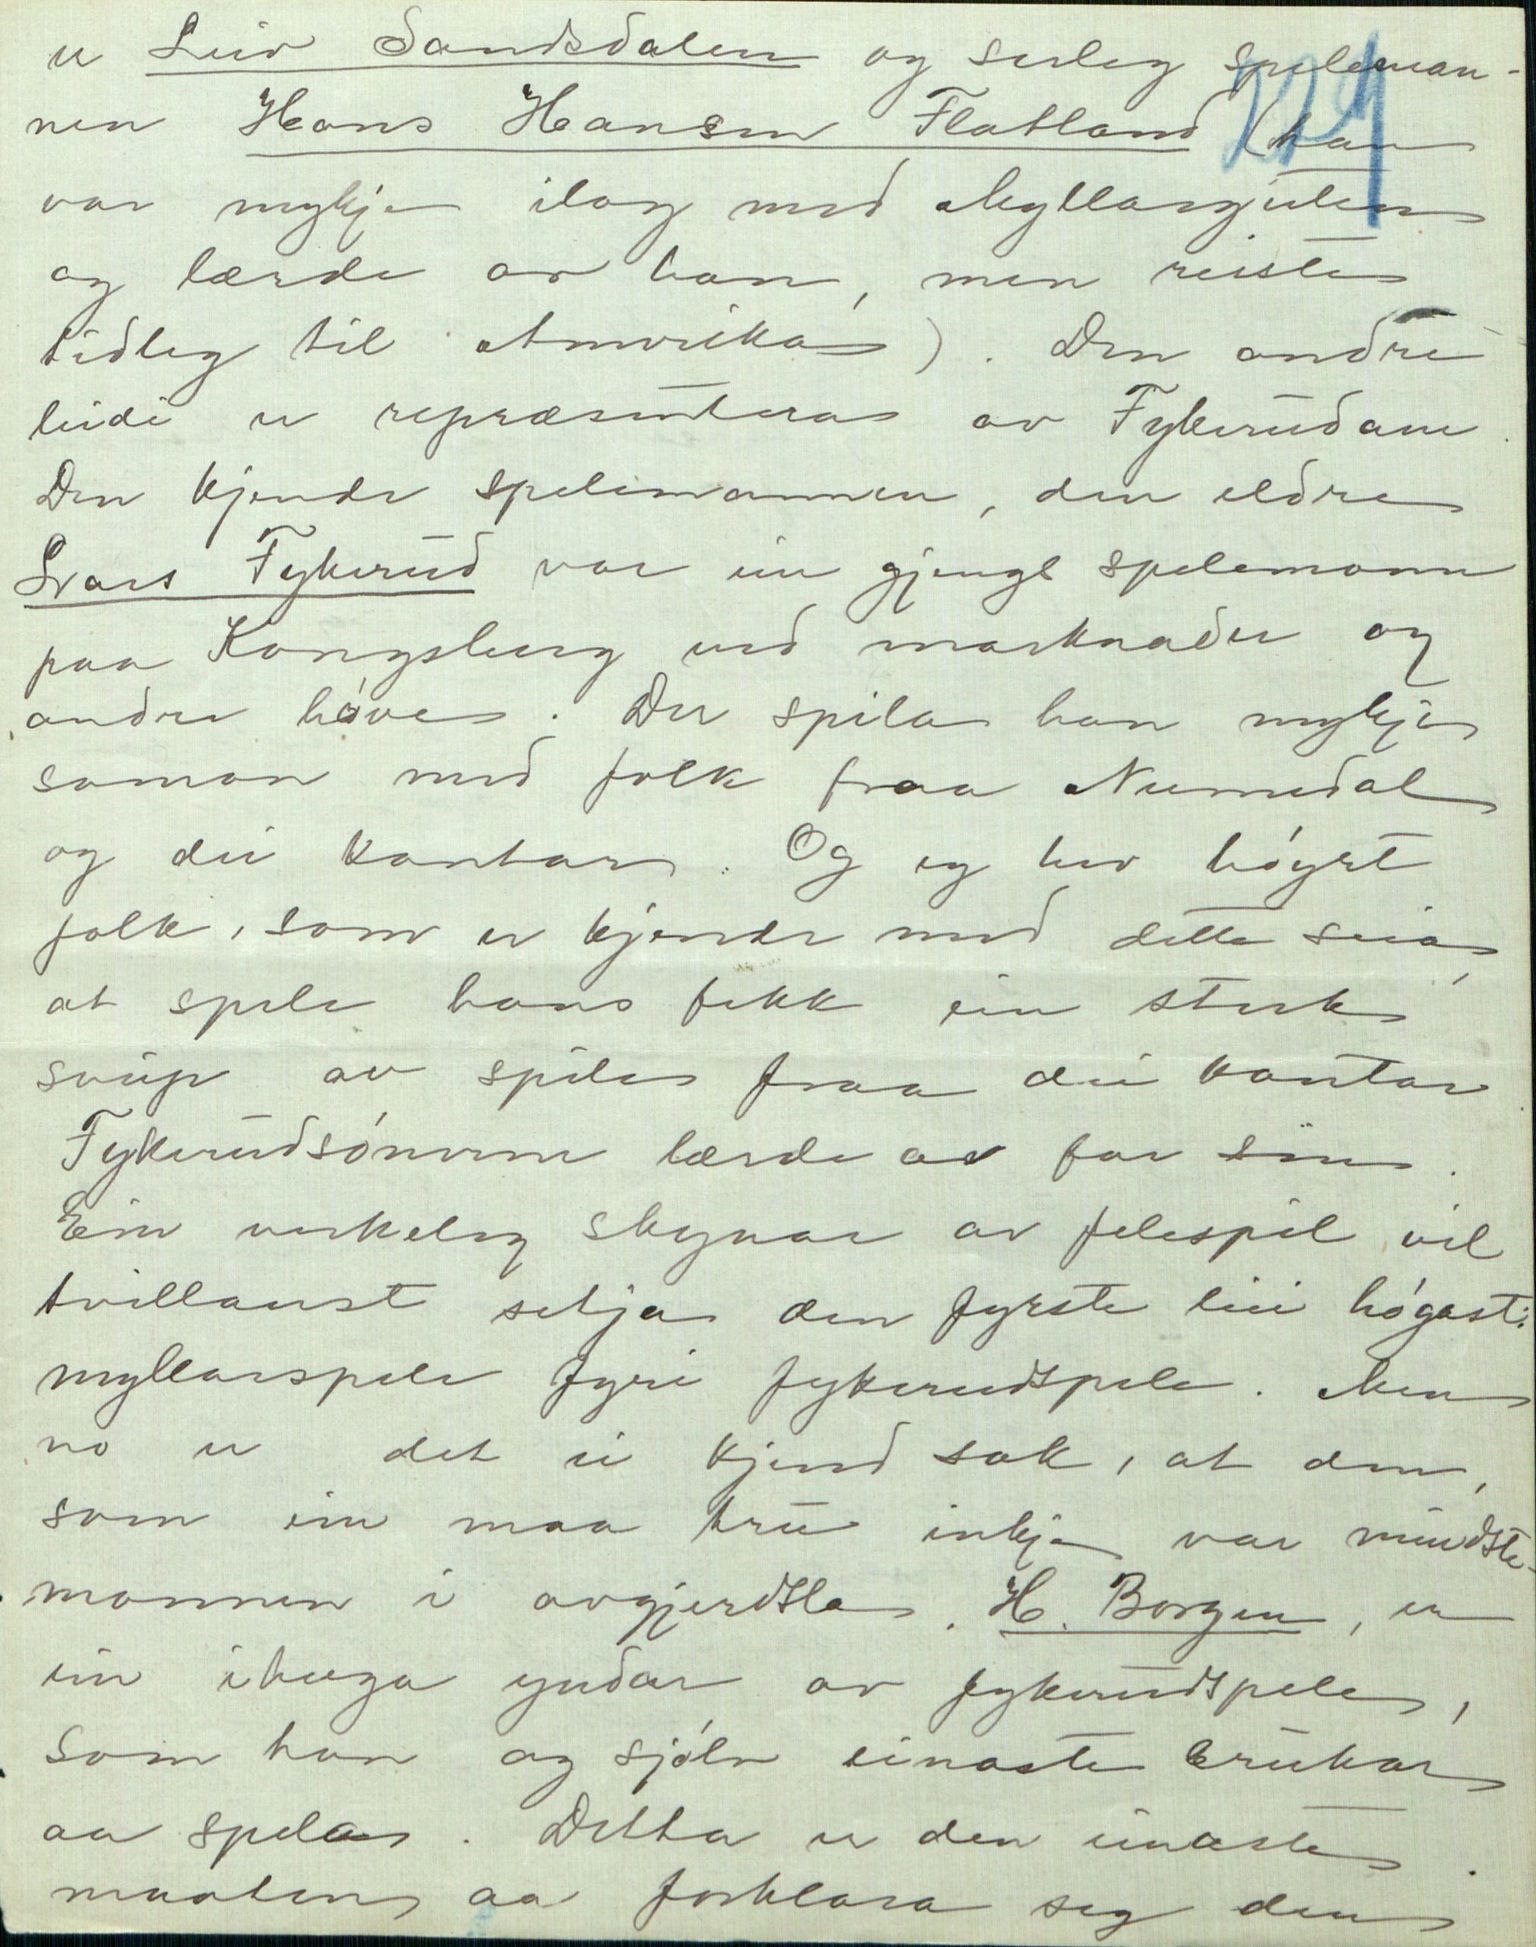 er Leiv Sandsdalen og serleg speleman-
nen Hans Hansen Flatland (han
229
var mykje ilag med Myllarguten
og lærde av han, men reiste
tidleg til Amerika). Den andre
leidi er repræsentera av Fykerudane.
Den kjende spelemannen, den eldre
Lvars Fykerud var ein gjengs spelemann
paa Kongsberg ved marknader og
andre høve. Der spila han mykje
saman med folk fraa Numedal
og dei kantar. Og eg hev høyrt
folk, som er kjende med dette seia,
at spele hans fekk ein sterk
svip av spile fraa dei kantar
Fykerudsønerne lærde av far sin.
Ein verkeleg skynar av felespel vil
tvillaust setja den fyrste leii høgast:
myllarspele fyri fykerudspele. Men
no er det ei kjend sak, at den,
som ein maa tru inkje var mindste-
mannen i avgjerdsla, H. Borgen, er
ein ihuga yndar av fykerudspele,
som han og sjølv einaste brukar
aa spela. Detta er den einaste
maaten aa forklara seg den